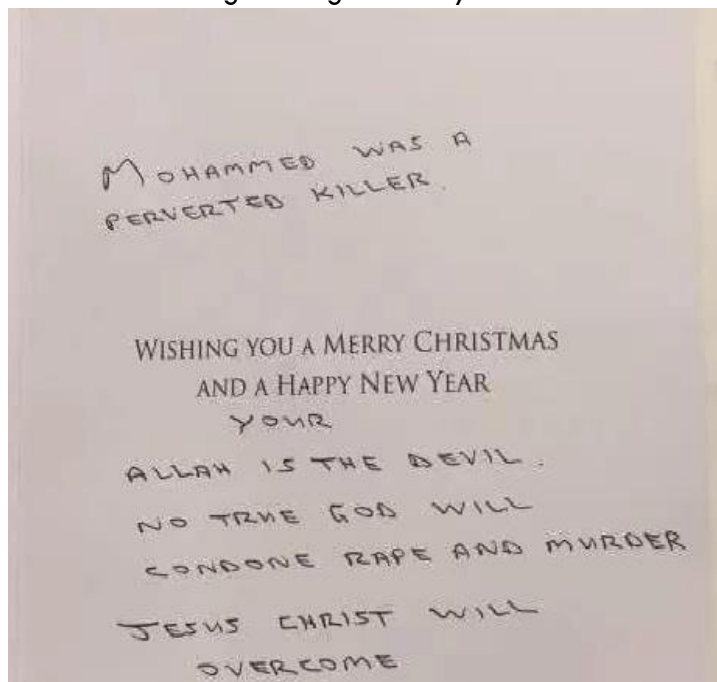 MOHAMMED WAS A
PERVERTED KILLER.
WISHING YOU A MERRY CHRISTMAS
AND A HAPPY NEW YEAR
YOUR
ALLAH IS THE DEVIL.
NO TRUE GOD WILL
CONDONE RAPE AND MURDER
JESUS CHRIST WILL
OVERCOME